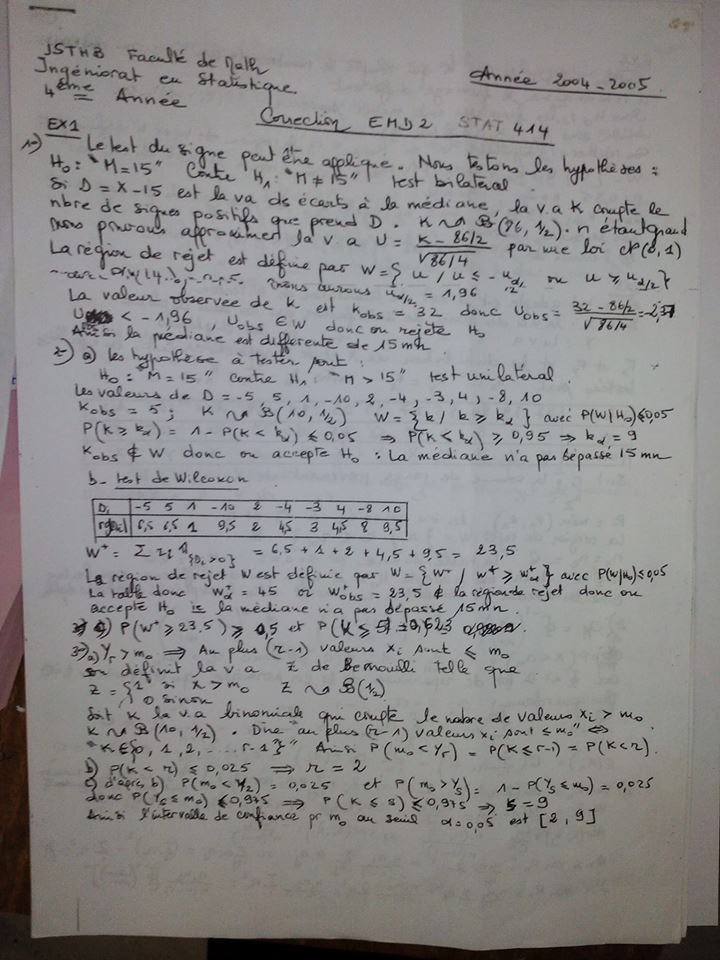 USTHB Faculté de Math
Ingéniorat en Statistique
4ème Année
Année 2004-2005.
Correction EMD2 STAT 414
EX1
1-) Le test du signe peut être appliqué. Nous testons les hypothèses :
H0 : "M=15" contre H1 : "M≠15" test bilatéral.
Si D = X-15 est la va ds écarts à la médiane, la v.a K compte le
nbre de signes positifs que prend D. K ~> B(86, 1/2). n étant grand
nous pouvons approximer la v.a U = (K - 86/2)/√(86/4) par une loi N(0,1)
La région de rejet est définie par W = { u / u ≤ -uα/2 ou u ≥ uα/2 }
nous aurons uα/2 = 1,96
La valeur observée de K est Kobs = 32 donc Uobs = (32 - 86/2)/√(86/4) = -2,37
U < -1,96, Uobs ∈ W donc on rejète H0
Ainsi la médiane est différente de 15 mn.
2-) a) les hypothèse à tester sont :
H0 : "M=15" contre H1 : "M > 15" test unilatéral.
Les valeurs de D = -5, 5, 1, -10, 2, -4, -3, 4, -8, 10
Kobs = 5; K ~> B(10, 1/2) W = {k / k ≥ kα} avec P(W/H0) ≤ 0,05
P(K ≥ kα) = 1 - P(K < kα) ≤ 0,05 ⇒ P(K < kα) ≥ 0,95 ⇒ kα = 9
Kobs ∉ W donc on accepte H0 : La médiane n'a pas dépassé 15 mn
b- test de Wilcoxon
Di -5 5 1 -10 2 -4 -3 4 -8 10
6,5 6,5 1 9,5 2 4,5 3 4,5 8 9,5
W+ = Σ ri 1{Di>0} = 6,5 + 1 + 2 + 4,5 + 9,5 = 23,5
La région de rejet W est définie par W = {W+ / W+ ≥ wα+} avec P(W/H0) ≤ 0,05
La table donc wα+ = 45 or W+obs = 23,5 ∉ la région de rejet donc on
accepte H0 ie la médiane n'a pas dépassé 15 mn.
c) P(W+ ≥ 23,5) ≥ 0,5 et P(K ≤ 5) = 0,623
3-) a) Yr > m0 ⇒ Au plus (r-1) valeurs xi sont ≤ m0
on définit la v a Z de bernouilli telle que
Z = { 1 si x > m0 Z ~> B(1/2)
0 sinon
Soit K la v.a binomiale qui compte le nbre de valeurs xi > m0
K ~> B(10, 1/2). Dire au plus (r-1) valeurs xi sont ≤ m0" ⇔
"K ∈ {0, 1, 2, .... r-1}" Ainsi P(m0 < Yr) = P(K ≤ r-1) = P(K < r).
b) P(K < r) ≤ 0,025 ⇒ r = 2
c) d'après b) P(m0 < Y2) = 0,025 et P(m0 > Ys) = 1 - P(Ys ≤ m0) = 0,025
donc P(Ys ≤ m0) ≤ 0,975 ⇒ P(K ≤ s) ≤ 0,975 ⇒ s = 9
Ainsi l'intervalle de confiance pr m0 au seuil α = 0,05 est [2, 9]